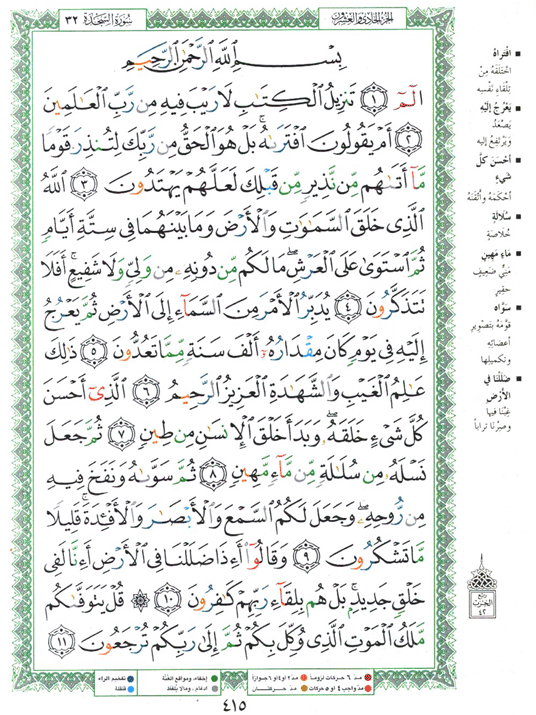 الجزء الحادي والعشرون
سورة السجدة ٣٢
بِسْمِ اللَّهِ الرَّحْمَٰنِ الرَّحِيمِ
الٓمٓ ۝١ تَنزِيلُ الْكِتَٰبِ لَا رَيْبَ فِيهِ مِن رَّبِّ الْعَٰلَمِينَ
۝٢ أَمْ يَقُولُونَ افْتَرَىٰهُ ۚ بَلْ هُوَ الْحَقُّ مِن رَّبِّكَ لِتُنذِرَ قَوْمًا
مَّآ أَتَىٰهُم مِّن نَّذِيرٍ مِّن قَبْلِكَ لَعَلَّهُمْ يَهْتَدُونَ ۝٣ اللَّهُ
الَّذِى خَلَقَ السَّمَٰوَٰتِ وَالْأَرْضَ وَمَا بَيْنَهُمَا فِى سِتَّةِ أَيَّامٍ
ثُمَّ اسْتَوَىٰ عَلَى الْعَرْشِ ۖ مَا لَكُم مِّن دُونِهِۦ مِن وَلِىٍّ وَلَا شَفِيعٍ ۚ أَفَلَا
تَتَذَكَّرُونَ ۝٤ يُدَبِّرُ الْأَمْرَ مِنَ السَّمَآءِ إِلَى الْأَرْضِ ثُمَّ يَعْرُجُ
إِلَيْهِ فِى يَوْمٍ كَانَ مِقْدَارُهُۥٓ أَلْفَ سَنَةٍ مِّمَّا تَعُدُّونَ ۝٥ ذَٰلِكَ
عَٰلِمُ الْغَيْبِ وَالشَّهَٰدَةِ الْعَزِيزُ الرَّحِيمُ ۝٦ الَّذِىٓ أَحْسَنَ
كُلَّ شَىْءٍ خَلَقَهُۥ ۖ وَبَدَأَ خَلْقَ الْإِنسَٰنِ مِن طِينٍ ۝٧ ثُمَّ جَعَلَ
نَسْلَهُۥ مِن سُلَٰلَةٍ مِّن مَّآءٍ مَّهِينٍ ۝٨ ثُمَّ سَوَّىٰهُ وَنَفَخَ فِيهِ
مِن رُّوحِهِۦ ۖ وَجَعَلَ لَكُمُ السَّمْعَ وَالْأَبْصَٰرَ وَالْأَفْـِٔدَةَ ۚ قَلِيلًا
مَّا تَشْكُرُونَ ۝٩ وَقَالُوٓا۟ أَءِذَا ضَلَلْنَا فِى الْأَرْضِ أَءِنَّا لَفِى
خَلْقٍ جَدِيدٍۭ ۚ بَلْ هُم بِلِقَآءِ رَبِّهِمْ كَٰفِرُونَ ۝١٠ ۞ قُلْ يَتَوَفَّىٰكُم
مَّلَكُ الْمَوْتِ الَّذِى وُكِّلَ بِكُمْ ثُمَّ إِلَىٰ رَبِّكُمْ تُرْجَعُونَ ۝١١
▪ افْتَراهُ
اخْتَلَقَهُ مِنْ
تِلْقَاءِ نَفْسِهِ
▪ يَعْرُجُ إِلَيْهِ
يَصْعَدُ
وَيَرْتَفِعُ إليه
▪ أَحْسَنَ كلَّ
شيءٍ
أَحْكَمَهُ وأَتْقَنَهُ
▪ سُلَالَةٍ
خُلاصَةٍ
▪ مَاءٍ مَهِينٍ
مَنِيٍّ ضَعِيفٍ
حقيرٍ
▪ سَوَّاه
قَوَّمَهُ بتَصْوِيرِ
أعضائِهِ
وتكميلِها
▪ ضَلَلْنَا فِي
الأَرْضِ
غِبْنا فيها
وصِرْنا تراباً
ربع
الحزب
٤٢
مدّ ٦ حركات لزوماً مدّ ٢ أو ٤ أو ٦ جوازاً إخفاء، ومواقع الغُنَّة تفخيم الراء
مدّ واجب ٤ أو ٥ حركات مدّ حركتان ادغام، ومالا يلفظ قلقلة
٤١٥